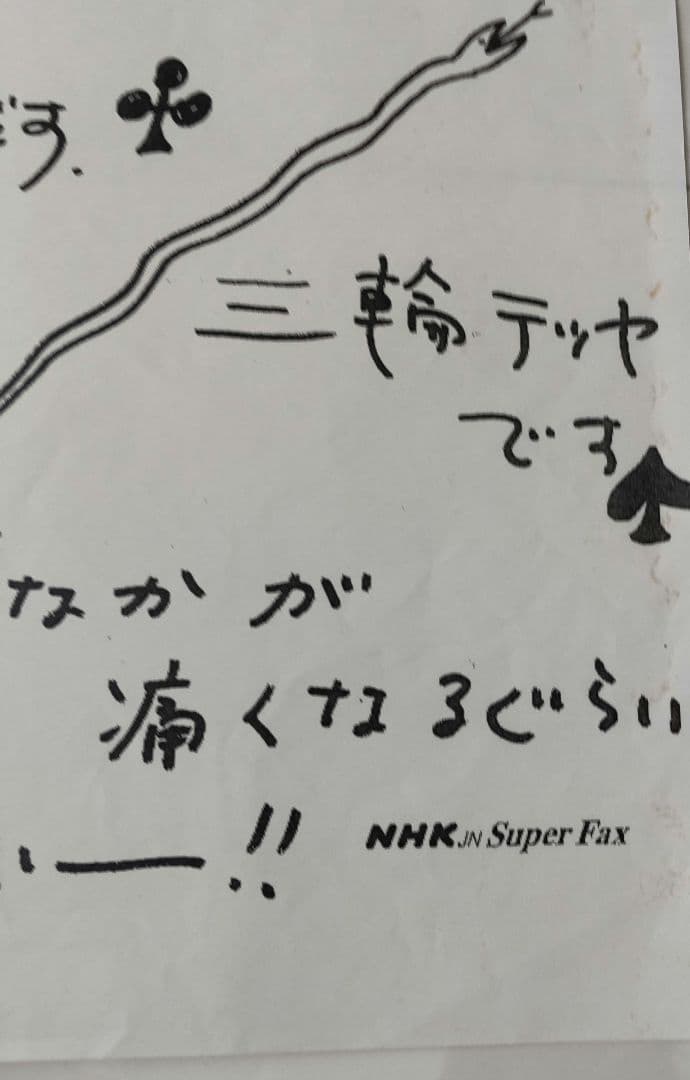 です.
三輪テツヤ
です
なかが
痛くなるぐらい
いー!!
NHK JN Super Fax